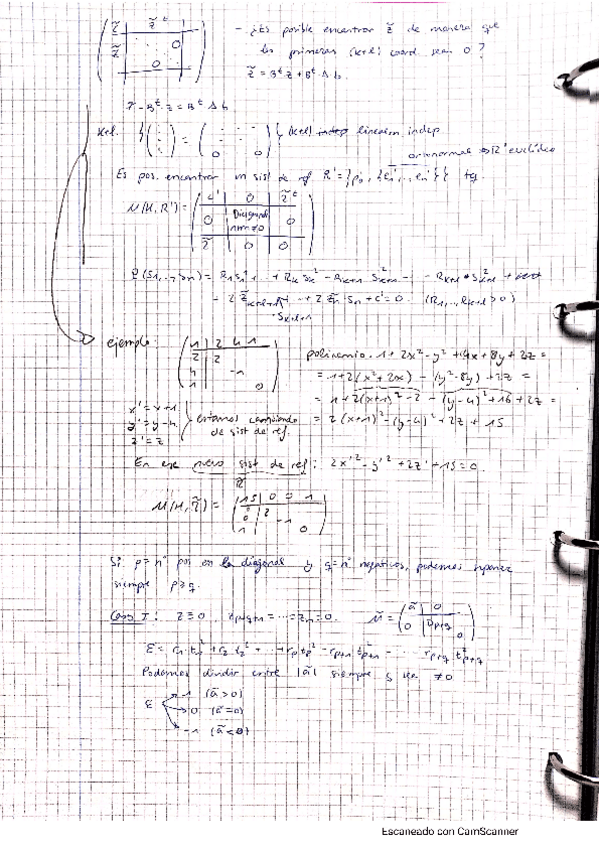 - ¿Es posible encontrar z̃ de manera que
las primeras (k+l) coord sean 0?
z̃ = Bᵗz + BᵗAb.
z̃ - Bᵗz = BᵗAb
k+l. linealm. indep
ortonormal ⇒ R' euclídeo
Es pos. encontrar un sist de ref R' = {p'₀, {e'₁, ..., e'ₙ}} tq.
M(H,R') = ( c' | 0 | z̃ᵗ
0 | Diagonal num ≠ 0 | 0
z̃ | 0 | 0 )
+ c' = 0. (R₁, ..., R_{k+l} > 0)
ejemplo: ( 1 | 2 4 1
2 | 2
4 | -1
1 | 0 )
polinomio. 1 + 2x² - y² + 4x + 8y + 2z =
= 1 + 2(x² + 2x) - (y² - 8y) + 2z =
= 1 + 2(x+1)² - 2 - (y-4)² + 16 + 2z =
= 2(x+1)² - (y-4)² + 2z + 15
x' = x+1
y' = y-4
z' = z
estamos cambiando de sist de ref.
En ese nuevo sist de ref: 2x'² - y'² + 2z' + 15 = 0.
M(H, R̃) = ( 15 | 0 0 1
0 | 2
0 | -1
1 | 0 )
Si p = nº pos en la diagonal y q = nº negativos, podemos suponer
siempre p ≥ q.
Caso I: z ≡ 0 z_{p+q+1} = ... = zₙ = 0. M̃ = ( ã | 0
0 | D_{p+q} 0 )
ε = r₁t₁² + r₂t₂² + ... + r_p t_p² - r_{p+1} t²_{p+1} - ... r_{p+q} t²_{p+q}
Podemos dividir entre |ã| siempre q sea ≠ 0
ε → 1 (ã > 0)
→ 0 (ã = 0)
→ -1 (ã < 0)
Escaneado con CamScanner